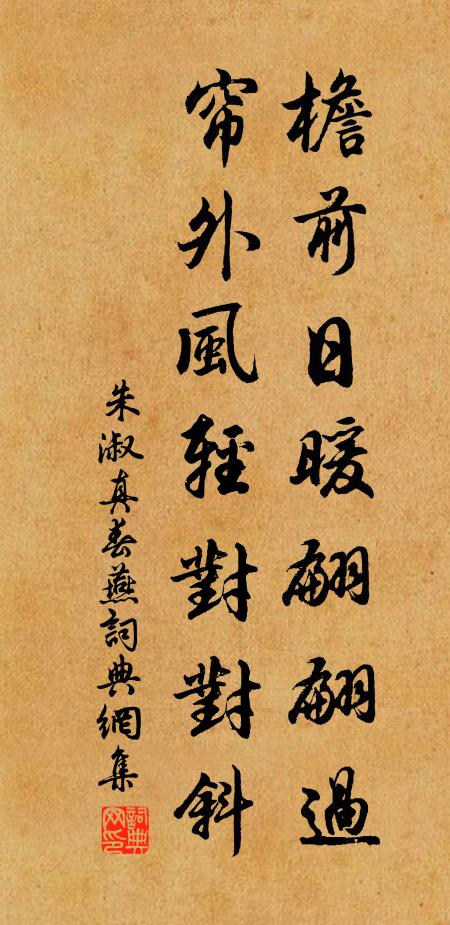 檐前日暖翩翩過
帘外風輕對對斜
朱淑真春燕詞典網集
詞典網印